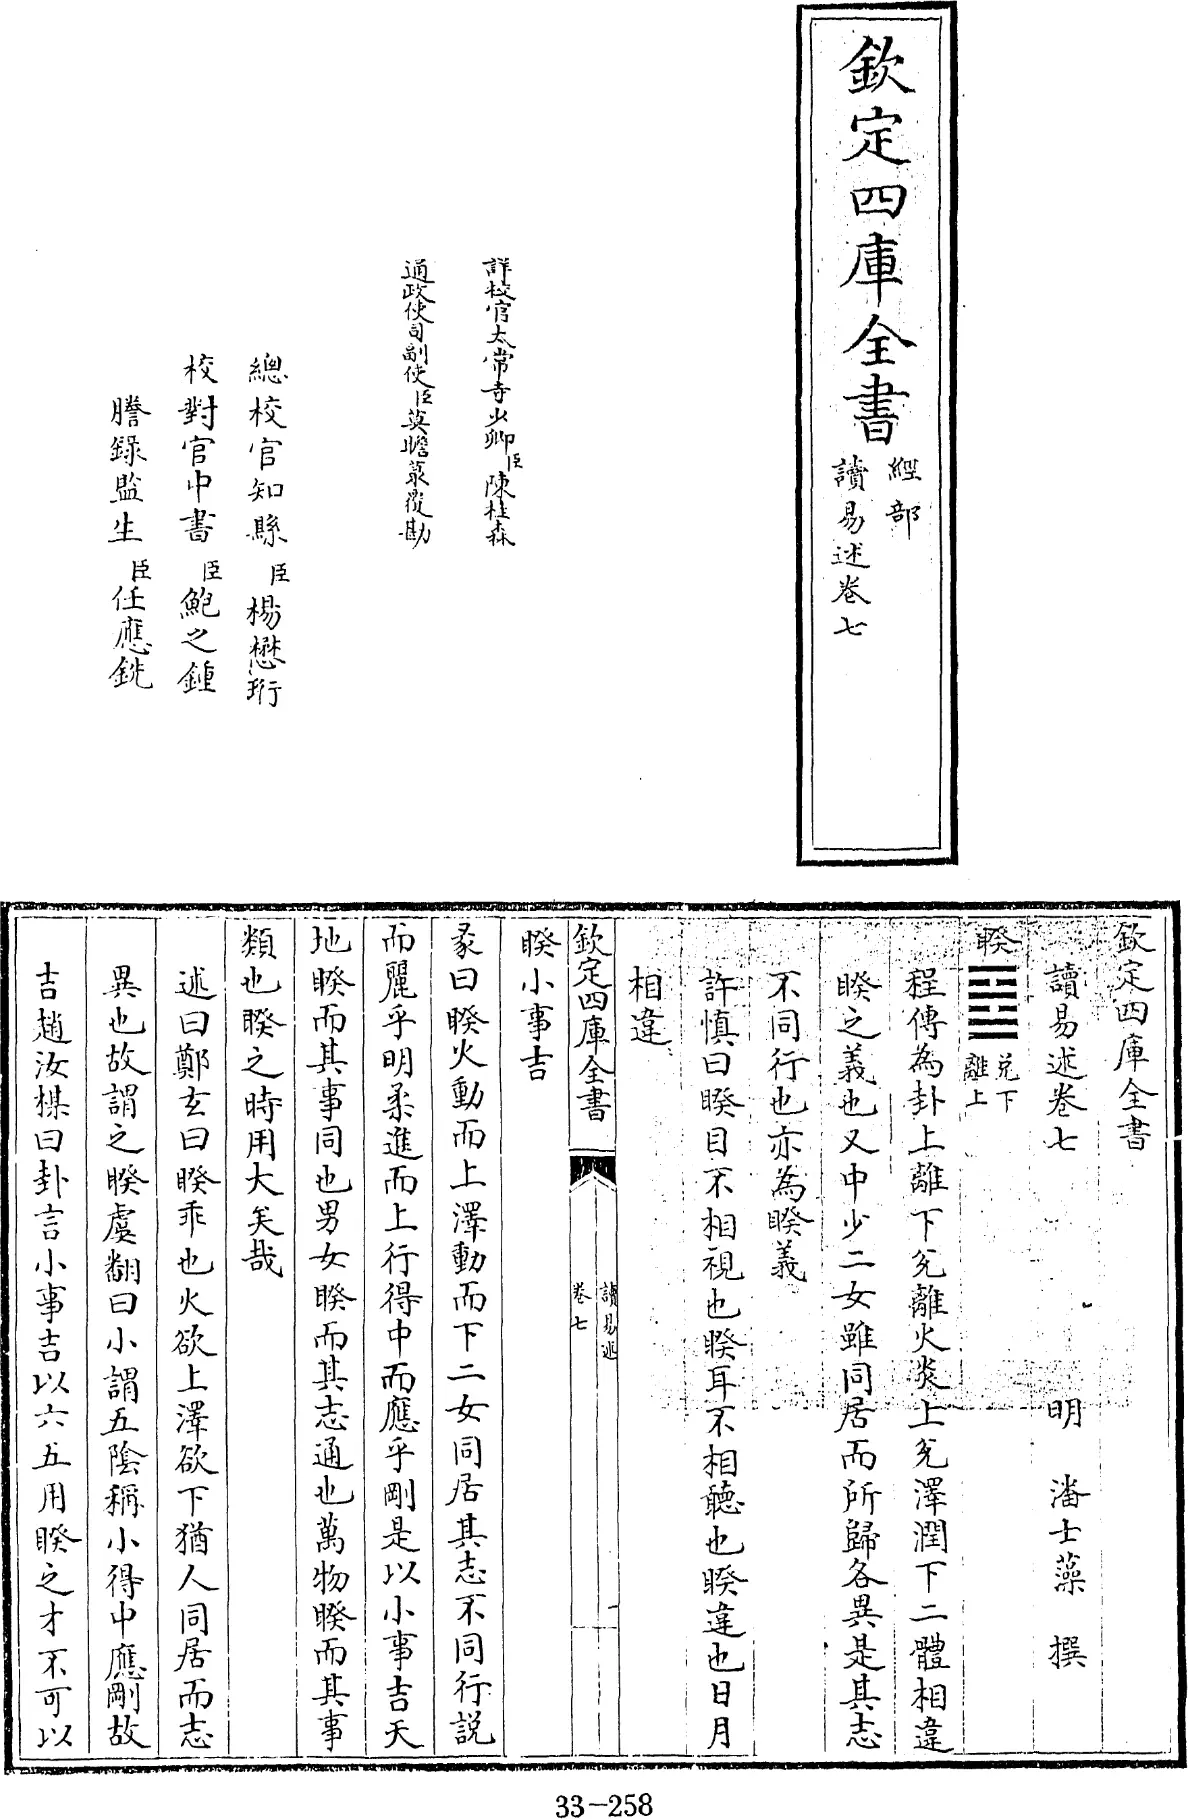 欽定四庫全書
經部
讀易述卷七
詳校官太常寺少卿臣陳桂森
通政使司副使臣莫瞻菉覆勘
總校官知縣臣楊懋珩
校對官中書臣鮑之鍾
謄錄監生臣任應銑
欽定四庫全書
讀易述卷七 明 潘士藻 撰
睽䷥兌下離上
程傳為卦上離下兌離火炎上兌澤潤下二體相違
睽之義也又中少二女雖同居而所歸各異是其志
不同行也亦為睽義
許慎曰睽目不相視也睽耳不相聽也睽違也日月
相違
欽定四庫全書
讀易述
卷七
一
睽小事吉
彖曰睽火動而上澤動而下二女同居其志不同行說
而麗乎明柔進而上行得中而應乎剛是以小事吉天
地睽而其事同也男女睽而其志通也萬物睽而其事
類也睽之時用大矣哉
述曰鄭玄曰睽乖也火欲上澤欲下猶人同居而志
異也故謂之睽虞翻曰小謂五陰稱小得中應剛故
吉趙汝楳曰卦言小事吉以六五用睽之才不可以
33-258